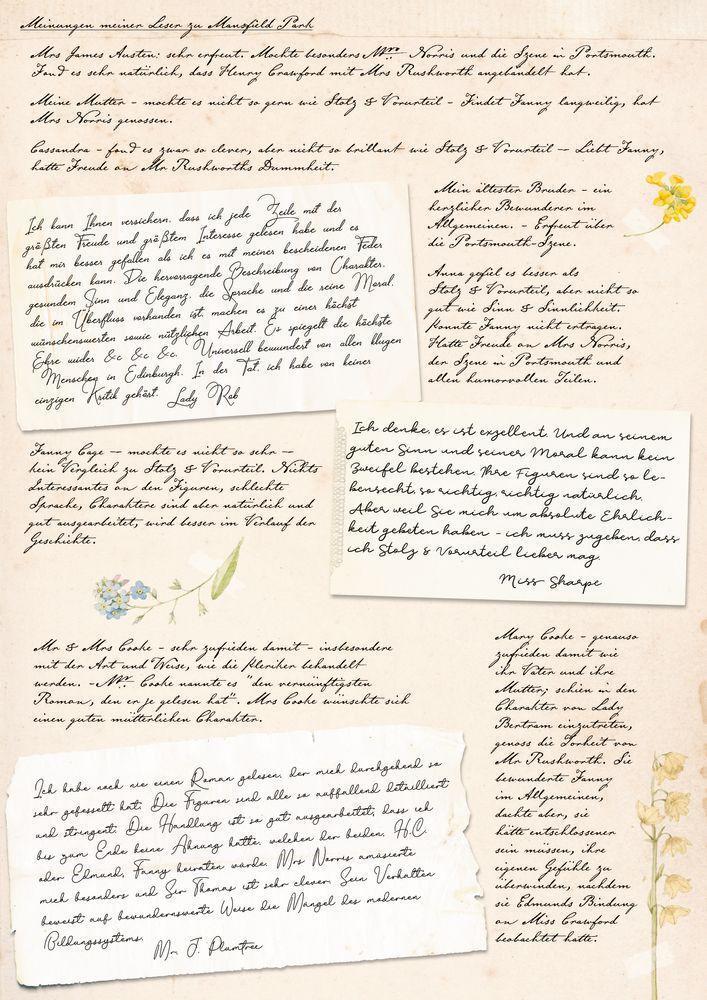 Meinungen meiner Leser zu Mansfield Park
Mrs James Austen: sehr erfreut. Mochte besonders Mrs. Norris und die Szene in Portsmouth.
Fand es sehr natürlich, dass Henry Crawford mit Mrs Rushworth angebandelt hat.
Meine Mutter - mochte es nicht so gern wie Stolz & Vorurteil - Findet Fanny langweilig, hat
Mrs Norris genossen.
Cassandra - fand es zwar so clever, aber nicht so brillant wie Stolz & Vorurteil — Liebt Fanny,
hatte Freude an Mr Rushworths Dummheit.
Ich kann Ihnen versichern, dass ich jede Zeile mit der
größten Freude und größtem Interesse gelesen habe und es
hat mir besser gefallen als ich es mit meiner bescheidenen Feder
ausdrücken kann. Die hervorragende Beschreibung von Charakter,
gesundem Sinn und Eleganz, die Sprache und die reine Moral,
die im Überfluss vorhanden ist, machen es zu einer höchst
wünschenswerten sowie nützlichen Arbeit. Es spiegelt die höchste
Ehre wider &c &c &c. Universell bewundert von allen klugen
Menschen in Edinburgh. In der Tat, ich habe von keiner
einzigen Kritik gehört. Lady Rob
Mein ältester Bruder - ein
herzlicher Bewunderer im
Allgemeinen. - Erfreut über
die Portsmouth-Szene.
Anna gefiel es besser als
Stolz & Vorurteil, aber nicht so
gut wie Sinn & Sinnlichkeit.
Konnte Fanny nicht ertragen.
Hatte Freude an Mrs Norris,
der Szene in Portsmouth und
allen humorvollen Teilen.
Fanny Cage — mochte es nicht so sehr —
kein Vergleich zu Stolz & Vorurteil. Nichts
Interessantes an den Figuren, schlechte
Sprache, Charaktere sind aber natürlich und
gut ausgearbeitet, wird besser im Verlauf der
Geschichte.
Ich denke, es ist exzellent. Und an seinem
guten Sinn und seiner Moral kann kein
Zweifel bestehen. Ihre Figuren sind so le-
bensecht, so richtig, richtig natürlich.
Aber weil Sie mich um absolute Ehrlich-
keit gebeten haben - ich muss zugeben, dass
ich Stolz & Vorurteil lieber mag.
Miss Sharpe
Mr & Mrs Cooke - sehr zufrieden damit - insbesondere
mit der Art und Weise, wie die Kleriker behandelt
werden. - Mr. Cooke nannte es "den vernünftigsten
Roman, den er je gelesen hat". Mrs Cooke wünschte sich
einen guten mütterlichen Charakter.
Mary Cooke - genauso
zufrieden damit wie
ihr Vater und ihre
Mutter; schien in den
Charakter von Lady
Bertram einzutreten,
genoss die Torheit von
Mr Rushworth. Sie
bewunderte Fanny
im Allgemeinen,
dachte aber, sie
hätte entschlossener
sein müssen, ihre
eigenen Gefühle zu
überwinden, nachdem
sie Edmunds Bindung
an Miss Crawford
beobachtet hatte.
Ich habe noch nie einen Roman gelesen, der mich durchgehend so
sehr gefesselt hat. Die Figuren sind alle so auffallend detailliert
und stringent. Die Handlung ist so gut ausgearbeitet, dass ich
bis zum Ende keine Ahnung hatte, welchen der beiden, H.C.
oder Edmund, Fanny heiraten würde. Mrs Norris amüsierte
mich besonders und Sir Thomas ist sehr clever. Sein Verhalten
beweist auf bewundernswerte Weise die Mängel des modernen
Bildungssystems.
Mr. J. Plumtree